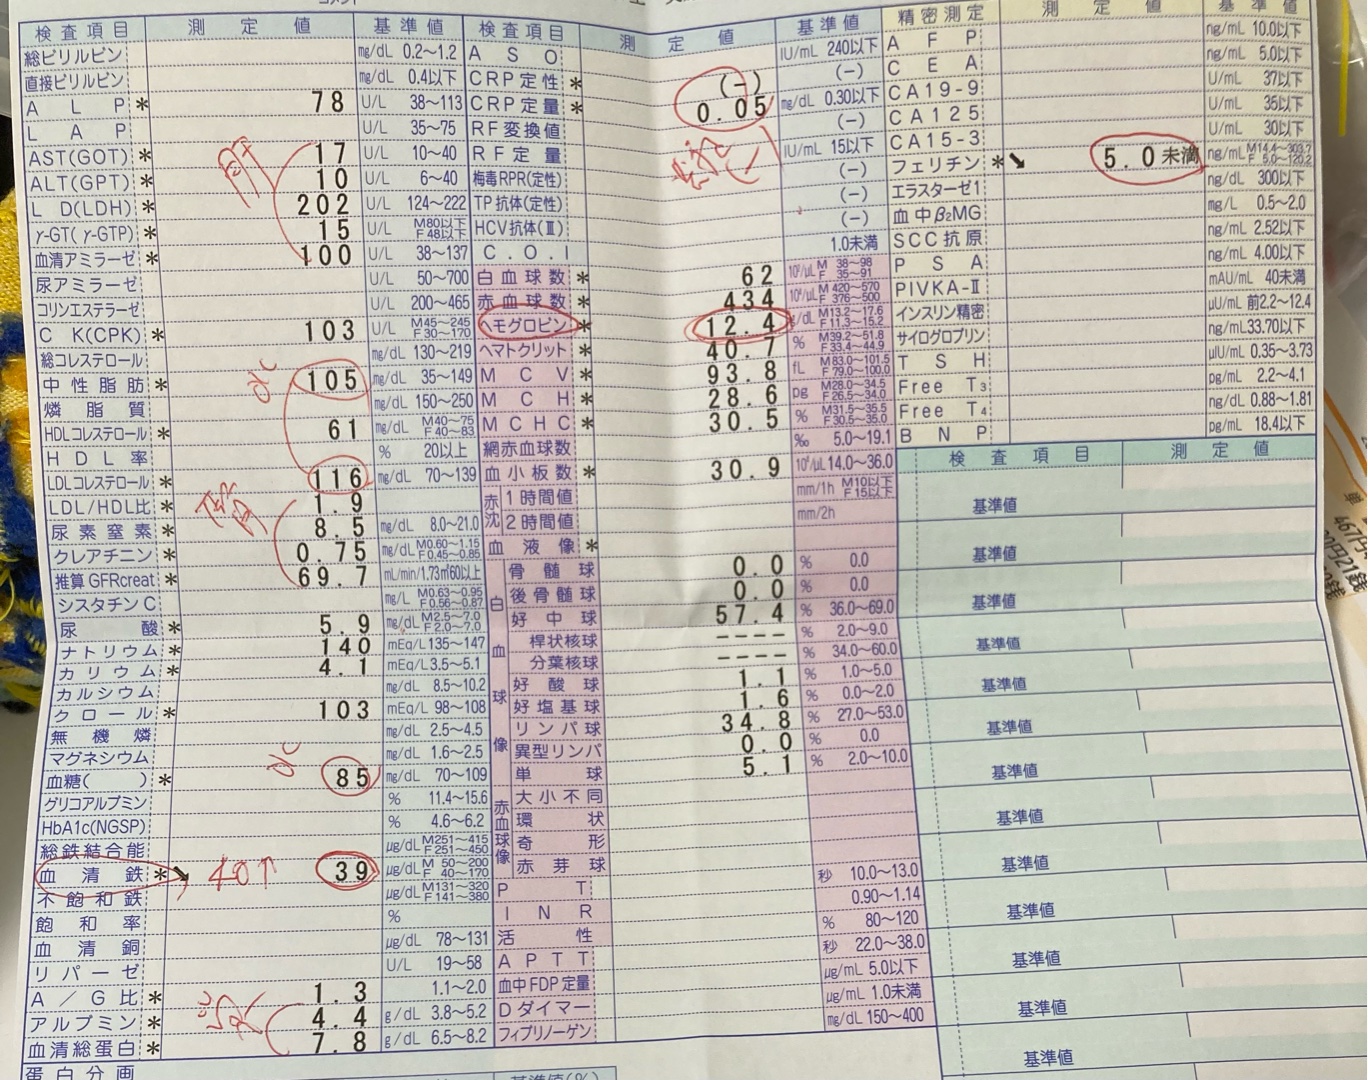 コメント
検査項目 測定値 基準値
総ビリルビン mg/dL 0.2〜1.2
直接ビリルビン mg/dL 0.4以下
ALP* 78 U/L 38〜113
LAP U/L 35〜75
AST(GOT)* 17 U/L 10〜40
ALT(GPT)* 10 U/L 6〜40
LD(LDH)* 202 U/L 124〜222
γ-GT(γ-GTP)* 15 U/L M80以下 F48以下
血清アミラーゼ* 100 U/L 38〜137
尿アミラーゼ U/L 50〜700
コリンエステラーゼ U/L 200〜465
CK(CPK)* 103 U/L M45〜245 F30〜170
総コレステロール mg/dL 130〜219
中性脂肪* 105 mg/dL 35〜149
燐脂質 mg/dL 150〜250
HDLコレステロール* 61 mg/dL M40〜75 F40〜83
HDL率 % 20以上
LDLコレステロール* 116 mg/dL 70〜139
LDL/HDL比* 1.9
尿素窒素* 8.5 mg/dL 8.0〜21.0
クレアチニン* 0.75 mg/dL M0.60〜1.15 F0.45〜0.85
推算GFRcreat* 69.7 mL/min/1.73㎡60以上
シスタチンC mg/L M0.63〜0.95 F0.56〜0.87
尿酸* 5.9 mg/dL M2.5〜7.0 F2.0〜7.0
ナトリウム* 140 mEq/L 135〜147
カリウム* 4.1 mEq/L 3.5〜5.1
カルシウム mg/dL 8.5〜10.2
クロール* 103 mEq/L 98〜108
無機燐 mg/dL 2.5〜4.5
マグネシウム mg/dL 1.6〜2.5
血糖( )* 85 mg/dL 70〜109
グリコアルブミン % 11.4〜15.6
HbA1c(NGSP) % 4.6〜6.2
総鉄結合能 μg/dL M251〜415 F251〜450
血清鉄*↘ 40↑ 39 μg/dL M 50〜200 F 40〜170
不飽和鉄 μg/dL M131〜320 F141〜380
飽和率 %
血清銅 μg/dL 78〜131
リパーゼ U/L 19〜58
A/G比* 1.3 1.1〜2.0
アルブミン* 4.4 g/dL 3.8〜5.2
血清総蛋白* 7.8 g/dL 6.5〜8.2
蛋白分画 基準値(%)
検査項目 測定値 基準値
ASO IU/mL 240以下
CRP定性* (-) (-)
CRP定量* 0.05 mg/dL 0.30以下
RF変換値 (-)
RF定量 IU/mL 15以下
梅毒RPR(定性) (-)
TP抗体(定性) (-)
HCV抗体(Ⅲ) (-)
C.O.I 1.0未満
白血球数* 62 10²/μL M 38〜98 F 35〜91
赤血球数* 434 10⁴/μL M 420〜570 F 376〜500
ヘモグロビン* 12.4 g/dL M13.2〜17.6 F11.3〜15.2
ヘマトクリット* 40.7 % M39.2〜51.8 F33.4〜44.9
MCV* 93.8 fL M83.0〜101.5 F79.0〜100.0
MCH* 28.6 pg M28.0〜34.5 F26.5〜34.0
MCHC* 30.5 % M31.5〜35.5 F30.5〜35.0
網赤血球数 ‰ 5.0〜19.1
血小板数* 30.9 10⁴/μL 14.0〜36.0
赤沈 1時間値 mm/1h M10以下 F15以下
2時間値 mm/2h
血液像*
白血球像
骨髄球 0.0 % 0.0
後骨髄球 0.0 % 0.0
好中球 57.4 % 36.0〜69.0
桿状核球 ---- % 2.0〜9.0
分葉核球 ---- % 34.0〜60.0
好酸球 1.1 % 1.0〜5.0
好塩基球 1.6 % 0.0〜2.0
リンパ球 34.8 % 27.0〜53.0
異型リンパ 0.0 % 0.0
単球 5.1 % 2.0〜10.0
赤血球像
大小不同
環状
奇形
赤芽球
PT 秒 10.0〜13.0
INR 0.90〜1.14
活性 % 80〜120
APTT 秒 22.0〜38.0
血中FDP定量 μg/mL 5.0以下
Dダイマー μg/mL 1.0未満
フィブリノーゲン mg/dL 150〜400
精密測定 測定値 基準値
AFP ng/mL 10.0以下
CEA ng/mL 5.0以下
CA19-9 U/mL 37以下
CA125 U/mL 35以下
CA15-3 U/mL 30以下
フェリチン*↘ 5.0未満 ng/mL M14.4〜303.7 F 5.0〜120.2
エラスターゼ1 ng/dL 300以下
血中β₂MG mg/L 0.5〜2.0
SCC抗原 ng/mL 2.52以下
PSA ng/mL 4.00以下
PIVKA-Ⅱ mAU/mL 40未満
インスリン精密 μU/mL 前2.2〜12.4
サイログロブリン ng/mL 33.70以下
TSH μIU/mL 0.35〜3.73
Free T₃ pg/mL 2.2〜4.1
Free T₄ ng/dL 0.88〜1.81
BNP pg/mL 18.4以下
検査項目 測定値
基準値
基準値
基準値
基準値
基準値
基準値
基準値
基準値
基準値
基準値
基準値
基準値
467円